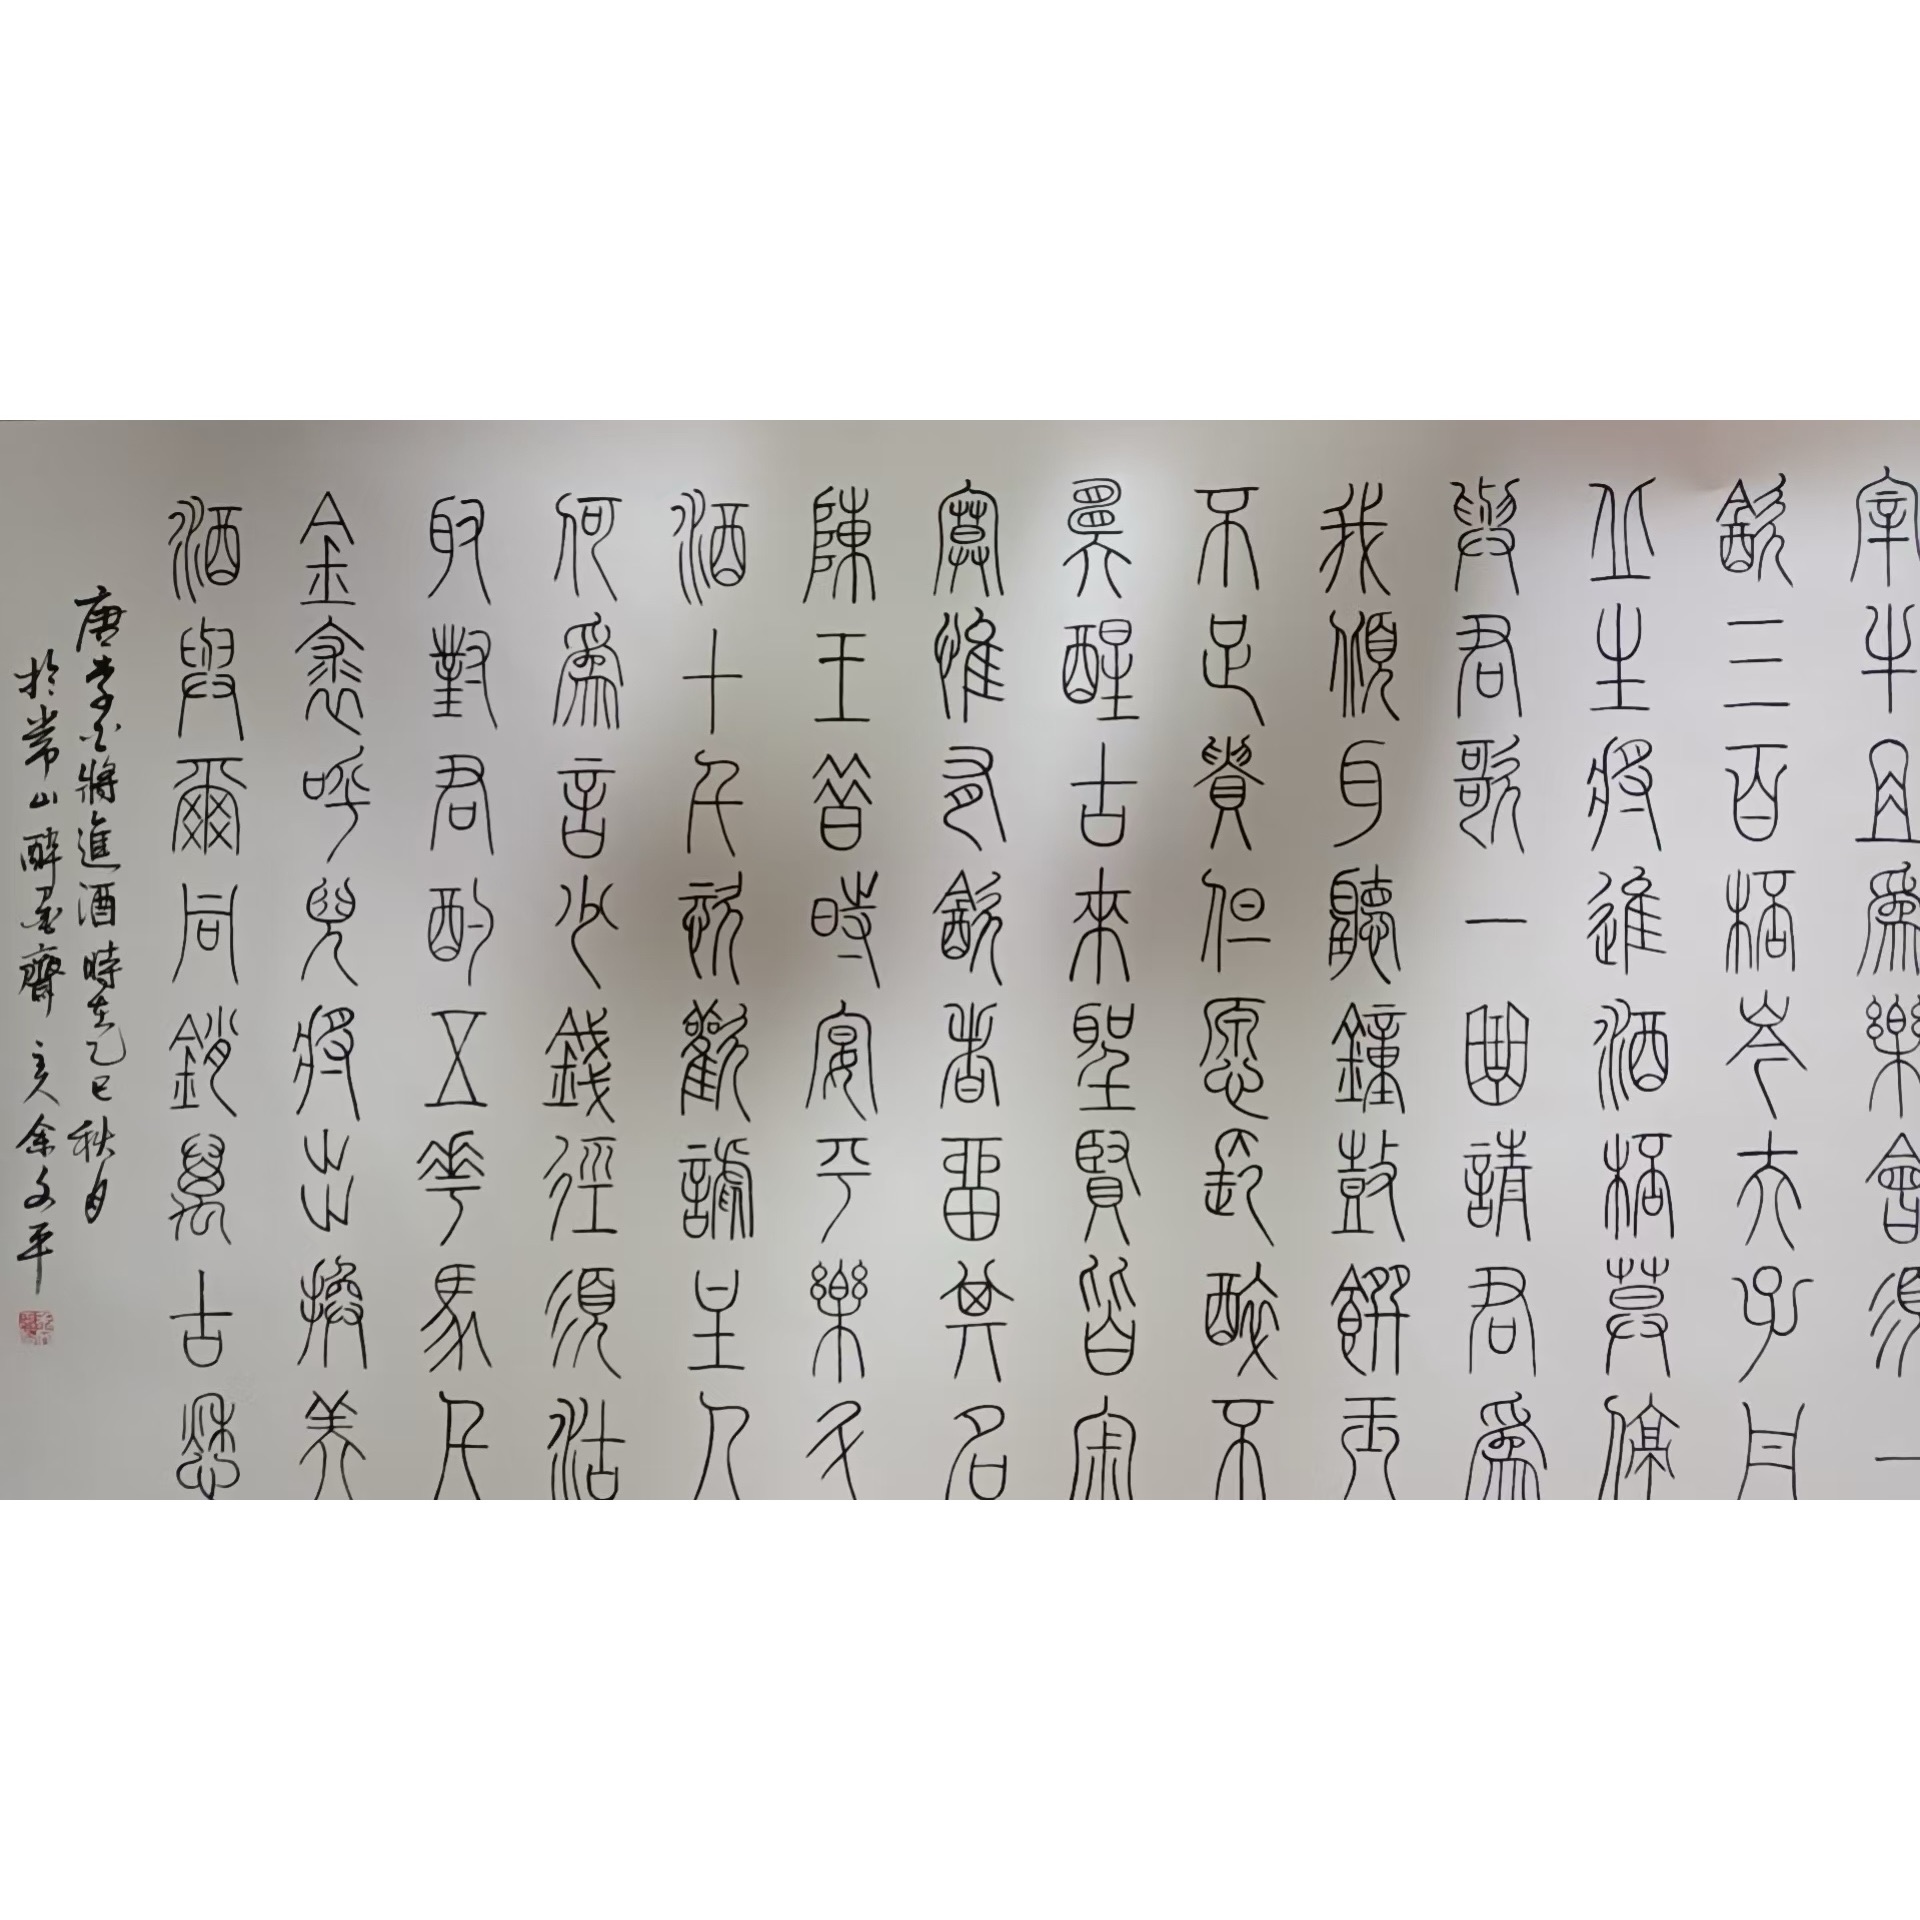 宰牛且爲樂會須一
飲三百桮岑夫子丹
丘生將進酒桮莫停
與君歌一曲請君爲
我傾耳聽鐘鼓饌玉
不足貴但愿長醉不
醒古來聖賢皆寂
寞惟有飲者留其名
陳王昔時宴平樂斗
酒十千恣歡謔主人
何爲言少錢徑須沽
取對君酌五花馬千
金裘呼兒將出換美
酒與爾同銷萬古愁
唐李白將進酒時在乙巳秋月
於常山醉墨齋主人余文平